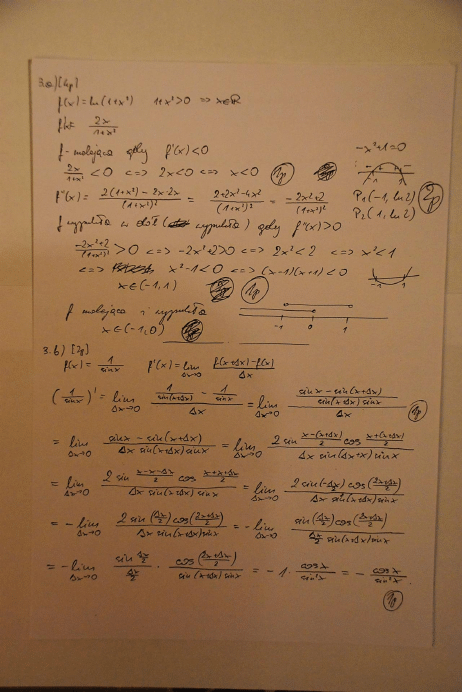 3.a) [4p]
f(x) = ln(1+x²) 1+x²>0 => x∈R
f'(x)= 2x/(1+x²)
f-malejąca gdy f'(x)<0 -x²+1=0
2x/(1+x²) < 0 <=> 2x<0 <=> x<0 1p
f''(x) = (2(1+x²) - 2x·2x)/(1+x²)² = (2+2x²-4x²)/(1+x²)² = (-2x²+2)/(1+x²)² P₁(-1, ln2) 2p
P₂(1, ln2)
f wypukła w dół (wypukła) gdy f''(x)>0
(-2x²+2)/(1+x²)² > 0 <=> -2x²+2>0 <=> 2x²<2 <=> x²<1
<=> x²-1<0 <=> (x-1)(x+1)<0 -1 1
x∈(-1,1) 1p
f malejąca i wypukła
x∈(-1,0) -1 0 1
3.b) [2p]
f(x) = 1/sinx f'(x) = lim Δx→0 (f(x+Δx)-f(x))/Δx
(1/sinx)' = lim Δx→0 (1/sin(x+Δx) - 1/sinx)/Δx = lim Δx→0 ((sinx - sin(x+Δx))/(sin(x+Δx)sinx))/Δx 1p
= lim Δx→0 (sinx - sin(x+Δx))/(Δx sin(x+Δx)sinx) = lim Δx→0 (2 sin (x-(x+Δx))/2 cos (x+(x+Δx))/2)/(Δx sin(Δx+x) sinx)
= lim Δx→0 (2 sin (x-x-Δx)/2 cos (x+x+Δx)/2)/(Δx sin(x+Δx) sinx) = lim Δx→0 (2 sin(-Δx/2) cos((2x+Δx)/2))/(Δx sin(x+Δx) sinx)
= -lim Δx→0 (2 sin(Δx/2) cos((2x+Δx)/2))/(Δx sin(x+Δx) sinx) = -lim Δx→0 (sin(Δx/2) cos((2x+Δx)/2))/(Δx/2 sin(x+Δx) sinx)
= -lim Δx→0 (sin Δx/2)/(Δx/2) · (cos((2x+Δx)/2))/(sin(x+Δx) sinx) = -1 · cosx/sin²x = - cosx/sin²x .
1p